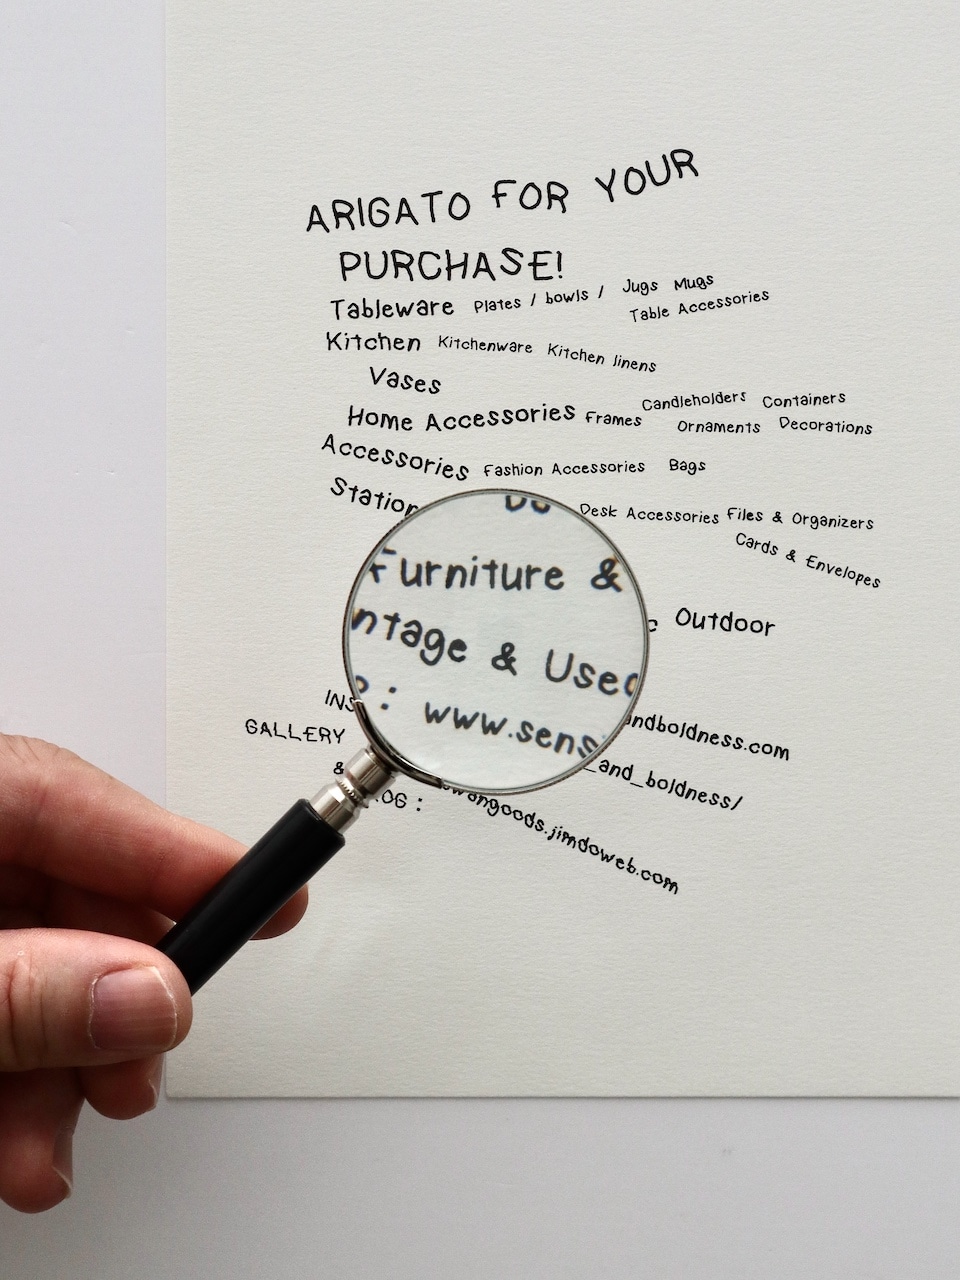 ARIGATO FOR YOUR
PURCHASE!
Tableware Plates / bowls / Jugs Mugs
Table Accessories
Kitchen Kitchenware Kitchen linens
Vases
Home Accessories Frames Candleholders Containers
Ornaments Decorations
Accessories Fashion Accessories Bags
Station Desk Accessories Files & Organizers
Cards & Envelopes
Furniture & Outdoor
ntage & Used
: www.sens andboldness.com
INS
GALLERY _and_boldness/
&
OG : wangoods.jimdoweb.com